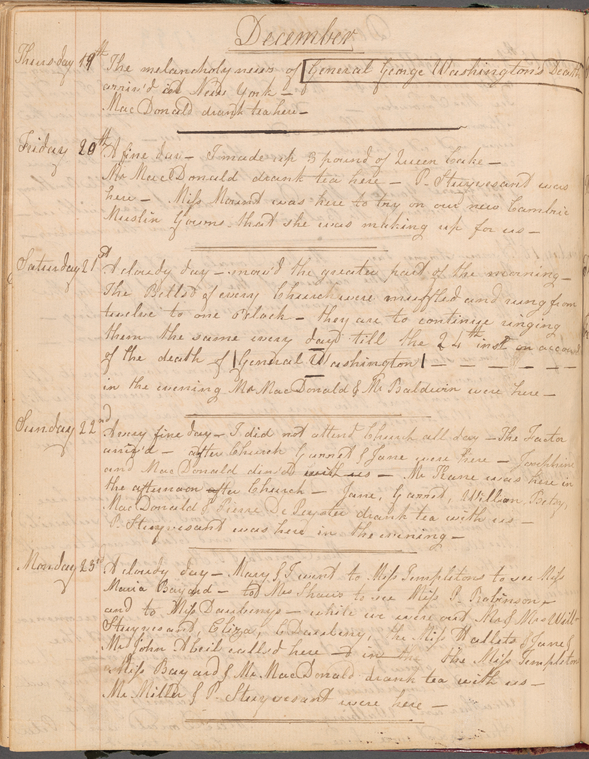 December
Thursday 19th The melancholy news of General George Washington's Death
arriv'd at New York —
MacDonald drank tea here —
Friday 20th A fine day — I made up 3 pound of Queen Cake —
Mr MacDonald drank tea here — P. Stuyvesant was
here — Miss Mount was here to try on our new Cambric
Muslin Gowns that she was making up for us —
Saturday 21st A cloudy day — snow'd the greater part of the morning —
The Bells of every Church were muffled and rung from
twelve to one o'clock — they are to continue ringing
them the same every day till the 24th inst on account
of the death of General Washington —
in the evening Mr MacDonald & Mr Baldwin were here —
Sunday 22nd A very fine day — I did not attend Church all day — The Factor
arriv'd — after Church Garret & Jane were here —
and MacDonald din'd with us — Mr Kane was here in
the afternoon after Church — Jane, Garret, William, Betsy,
MacDonald & drank tea with us —
P. Stuyvesant was here in the evening —
Monday 23rd A cloudy day — Mary & I went to Miss Templetons to see Miss
Maria Bayard — to Mrs Shaws to see Miss P. Robinson —
and to Miss — while we were out Mr & Mrs Will
Stuyvesant, Eliza, the Miss & Jane &
Mr John Neil called here — & in the the Miss Templeton
Miss Bayard & Mr MacDonald drank tea with us —
Mr Miller & P. Stuyvesant were here —